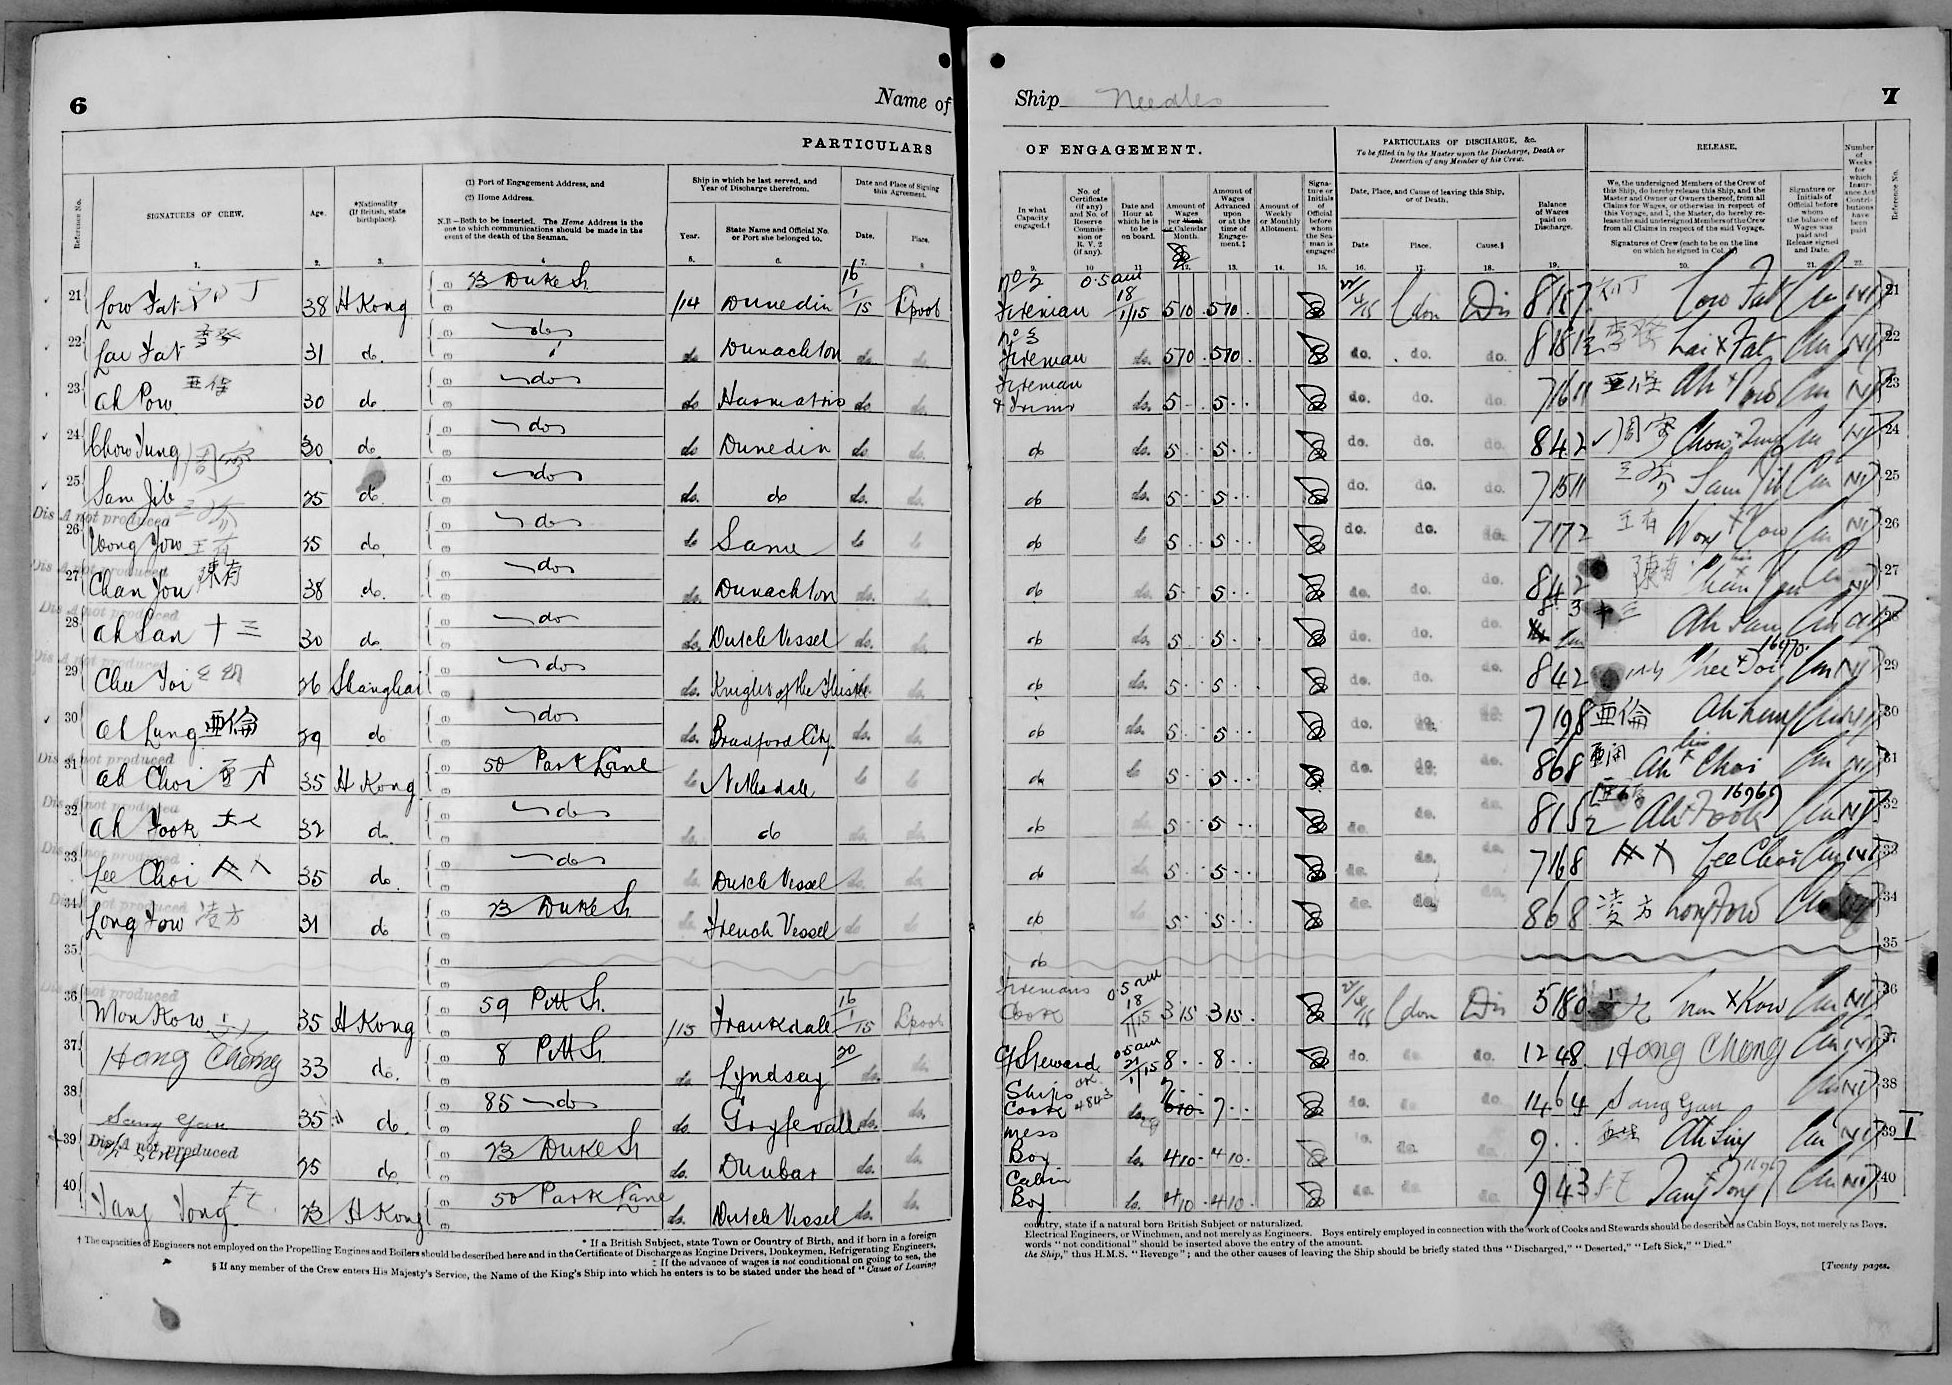 6
Name of
PARTICULARS
Reference No.
SIGNATURES OF CREW.
Age.
*Nationality (If British, state birthplace).
(1) Port of Engagement Address, and
(2) Home Address.
N.B.—Both to be inserted. The Home Address is the one to which communications should be made in the event of the death of the Seaman.
Ship in which he last served, and Year of Discharge therefrom.
Year.
State Name and Official No. or Port she belonged to.
Date and Place of Signing this Agreement.
Date.
Place.
1. 2. 3. 4 5. 6. 7. 8
21 Low Fat 38 H Kong 23 Duke St 1/14 Dunedin 16/1/15 Lpool
22 Lai Fat 李發 31 do do do Dunachton do do
23 Ah Pow 亜保 30 do do do do do
24 Chow Tung 周 30 do do do Dunedin do do
25 Sam Jib 25 do do do. do do. do.
Dis A not produced
26 Wong Yow 王有 25 do do do Same do do
Dis A not produced
27 Chan You 陳有 38 do. do do. Dunachton do. do.
Dis A not produced
28 Ah San 十三 30 do. do do. Dutch Vessel do. do.
Dis A not produced
29 Chee Toi 26 Shanghai do do. Knight of the Thistle do.
30 Ah Lung 亜倫 29 do do do. Bradford City do. do.
Dis A not produced
31 Ah Choi 35 H Kong 50 Park Lane do Nithsdale do do
Dis A not produced
32 Ah Fook 32 do. do do. do do. do.
Dis A not produced
33 Lee Choi 35 do. do do. Dutch Vessel do. do.
Dis A not produced
34 Long Fow 凌方 31 do 23 Duke St do. French Vessel do do
35
Dis A not produced
36 Mon Kow 35 H Kong 59 Pitt St 1/15 Frankdale 16/1/15 Lpool
37 Hong Chong 33 do. 8 Pitt St do. Lyndsay 20 do. do.
38 Sang Yau 35 do. 85 do do. do. do.
39 Dis A not produced 25 do 23 Duke St do. Dunbar do. do.
40 Tang Tong 23 H Kong 50 Park Lane do. Dutch Vessel do. do.
* If a British Subject, state Town or Country of Birth, and if born in a foreign
† The capacities of Engineers not employed on the Propelling Engines and Boilers should be described here and in the Certificate of Discharge as Engine Drivers, Donkeymen, Refrigerating Engineers,
‡ If the advance of wages is not conditional on going to sea, the
§ If any member of the Crew enters His Majesty's Service, the Name of the King's Ship into which he enters is to be stated under the head of "Cause of Leaving
Ship Needles
7
OF ENGAGEMENT.
PARTICULARS OF DISCHARGE, &c.
To be filled in by the Master upon the Discharge, Death or Desertion of any Member of his Crew.
RELEASE.
In what Capacity engaged.†
No. of Certificate (if any) and No. of Reserve Commission or R. V. 2 (if any).
Date and Hour at which he is to be on board.
Amount of Wages per Week or Calendar Month.
Amount of Wages Advanced upon or at the time of Engagement.‡
Amount of Weekly or Monthly Allotment.
Signature or Initials of Official before whom the Seaman is engaged
Date, Place, and Cause of leaving this Ship, or of Death.
Date Place. Cause.§
Balance of Wages paid on Discharge.
We, the undersigned Members of the Crew of this Ship, do hereby release this Ship, and the Master and Owner or Owners thereof, from all Claims for Wages, or otherwise in respect of this Voyage, and I, the Master, do hereby release the said undersigned Members of the Crew from all Claims in respect of the said Voyage.
Signatures of Crew (each to be on the line on which he signed in Col. 1)
Signature or Initials of Official before whom the balance of Wages was paid and Release signed and Date.
Number of Weeks for which Insurance Act Contributions have been paid
Reference No.
9. 10 11 12. 13. 14. 15. 16. 17. 18. 19. 20. 21. 22.
No 2 Fireman 0.5 am 18/1/15 5 10 . 5 10 . Ldon Dis 8 18 7 Low Fat 21
No 3 Fireman do. 5 10 . 5 10 . do. do. do. Lai x Fat NI 22
Fireman & Trimr do. 5 . . 5 . . do. do. do. 7 16 11 亜保 Ah x Pow NI 23
do do. 5 . . 5 . . do. do. do. 8 4 2 周 Chow x Tung NI 24
do do. 5 . . 5 . . do. do. do. 7 15 11 Sam Jib NI 25
do do 5 . . 5 . . do. do. do. 7 17 2 王有 Wong x Yow NI 26
do do. 5 . . 5 . . do. do. do. 8 4 2 陳有 Chan x You NI 27
do do. 5 . . 5 . . do. do. do. 8 . 3 十三 Ah San 28
do do. 5 . . 5 . . do. do. do. 8 4 2 Chee x Toi 16970 NI 29
do do. 5 . . 5 . . do. do. do. 7 19 8 亜倫 Ah Lung NI 30
do do 5 . . 5 . . do. do. do. 8 6 8 Ah his x Choi NI 31
do do 5 . . 5 . . do. do. do. 8 15 2 Ah x Fook 16969 NI 32
do do 5 . . 5 . . do. do. do. 7 16 8 Lee Choi NI 33
do do 5 . . 5 . . do. do. do. 8 6 8 凌方 Long Fow 34
do 35
Firemans Cook 0.5 am 18/1/15 3 15 . 3 15 . Ldon Dis 5 18 0 x Kow NI 36
Steward 0.5 am 21/1/15 8 . . 8 . . do. do. do. 12 4 8 Hong Chong 37
Ships Cook 4843 do. 7 . . do. do. do. 14 6 4 Sang Yau NI 38
Mess Boy do. 4 10 . 4 10 . do. do. do. 9 . . Ah Sing NI 39 I
Cabin Boy do. 4 10 . 4 10 . do. do. do. 9 4 3 Tang x Tong NI 40
country, state if a natural born British Subject or naturalized.
Electrical Engineers, or Winchmen, and not merely as Engineers. Boys entirely employed in connection with the work of Cooks and Stewards should be described as Cabin Boys, not merely as Boys.
words "not conditional" should be inserted above the entry of the amount.
the Ship," thus H.M.S. "Revenge"; and the other causes of leaving the Ship should be briefly stated thus "Discharged," "Deserted," "Left Sick," "Died."
[Twenty pages.